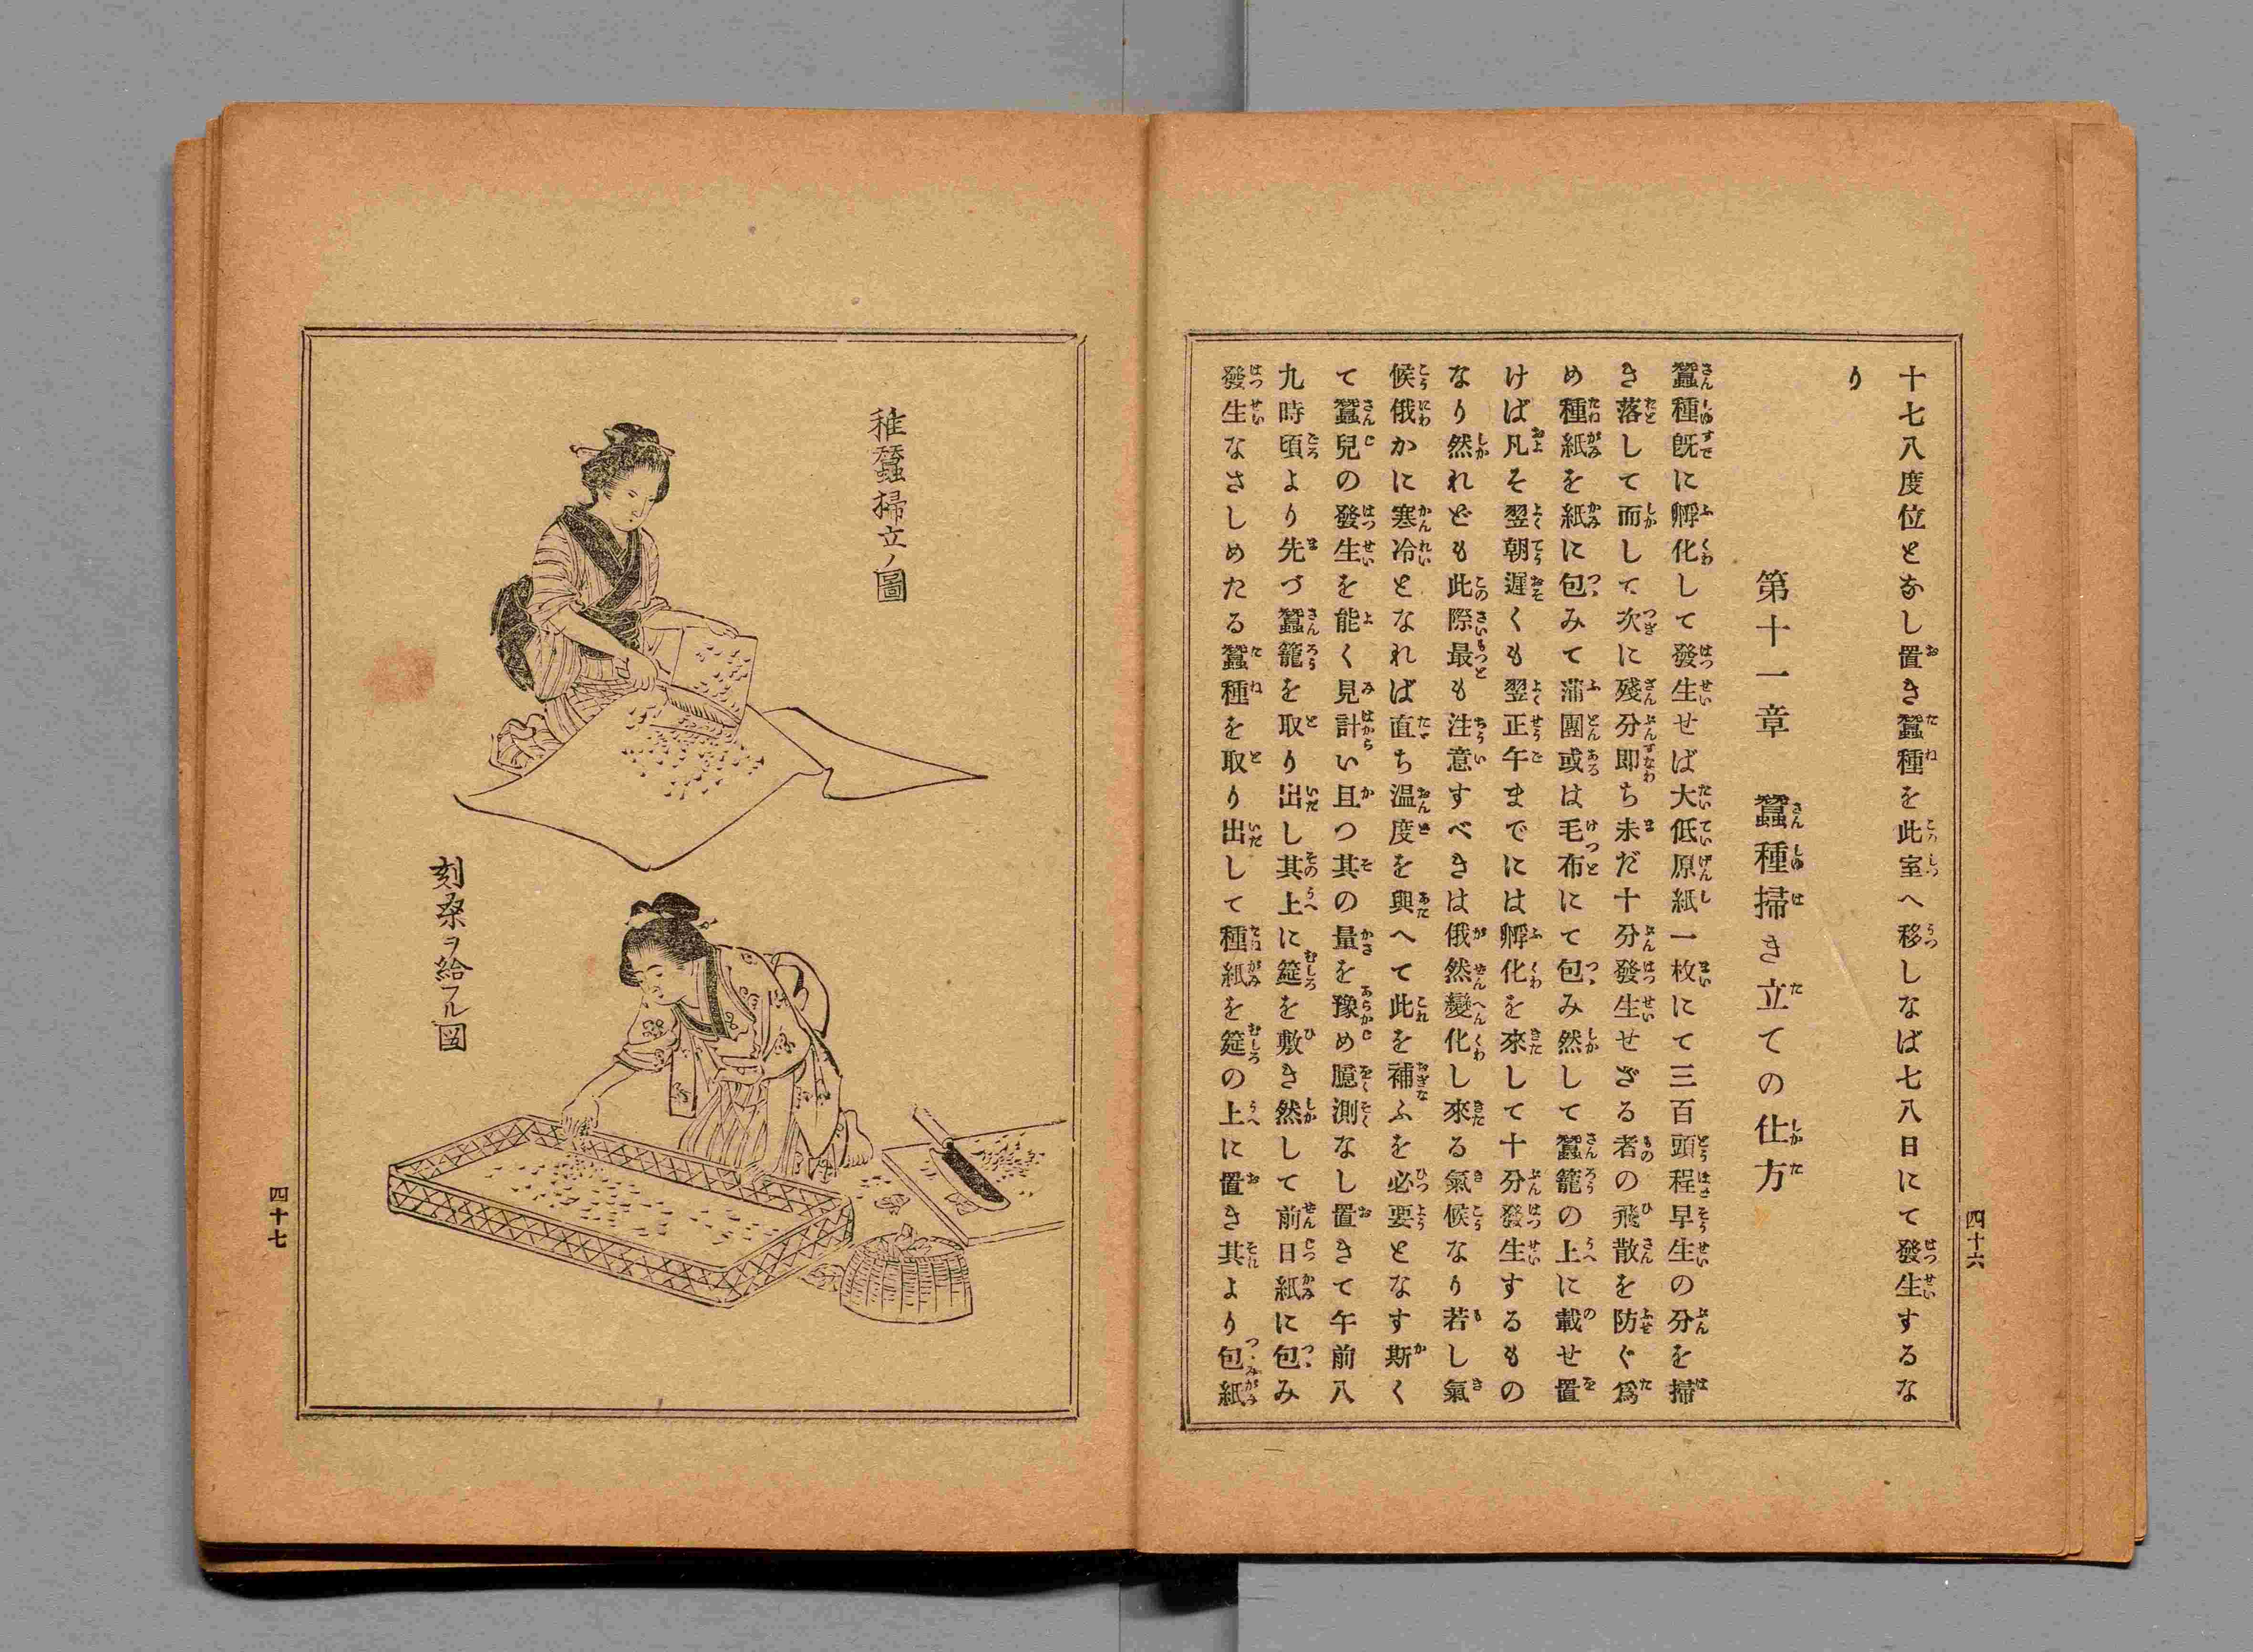 十七八度位となし置き蠶種を此室へ移しなば七八日にて發生するな
り
第十一章　蠶種掃き立ての仕方
蠶種既に孵化して發生せば大低原紙一枚にて三百頭程早生の分を掃
き落して而して次に殘分即ち未だ十分發生せざる者の飛散を防ぐ爲
め種紙を紙に包みて蒲團或は毛布にて包み然して蠶籠の上に載せ置
けば凡そ翌朝遲くも翌正午までには孵化を來して十分發生するもの
なり然れども此際最も注意すべきは俄然變化し來る氣候なり若し氣
候俄かに寒冷となれば直ち温度を興へて此を補ふを必要となす斯く
て蠶兒の發生を能く見計い且つ其の量を豫め臆測なし置きて午前八
九時頃より先づ蠶籠を取り出し其上に筵を敷き然して前日紙に包み
發生なさしめたる蠶種を取り出して種紙を筵の上に置き其より包紙
四十六
稚蠶掃立ノ圖
刻桑ヲ給フル図
四十七